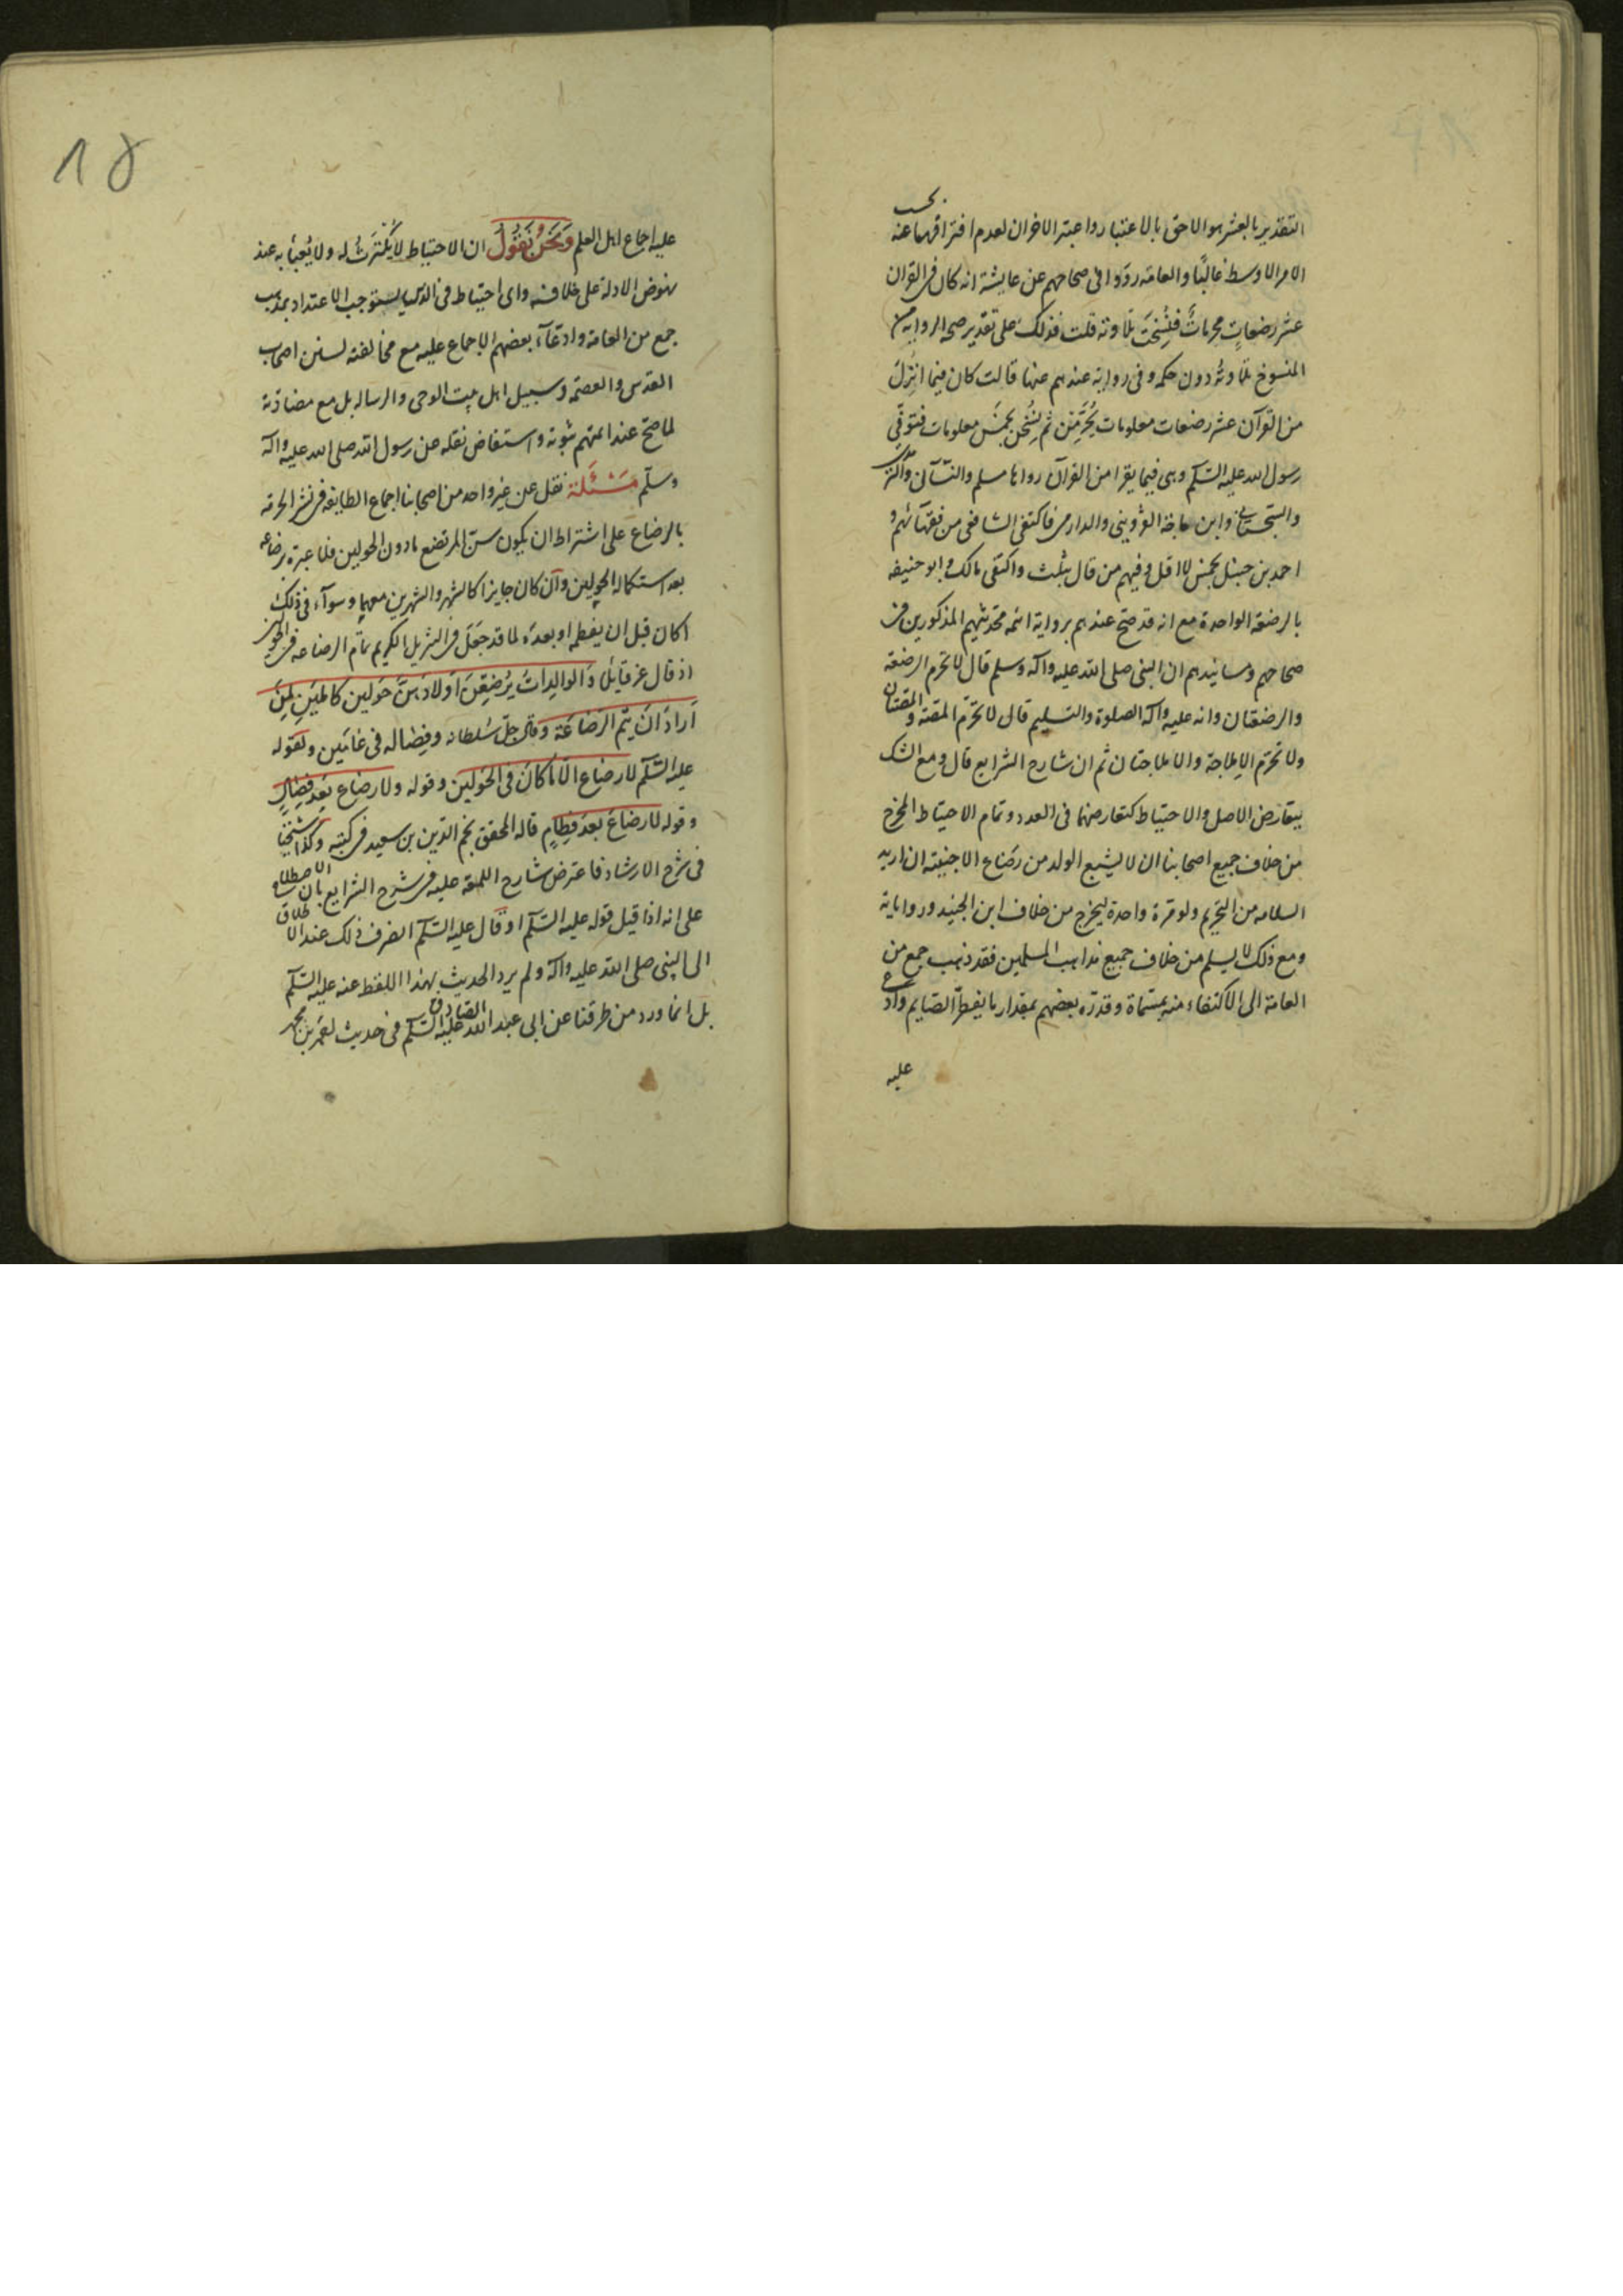 التقدير بالعشر هو الاحق بالاعتبار واعتبر الاخران لعدم افتراقهما عنه بحسب
الامر الاوسط غالبًا والعامة رووا في صحاحهم عن عايشة انه كان في القران
عشر رضعاتٍ محرمات فنُسِخَت تلاوته قلت فذلك على تقدير صحة الرواية من
المنسوخ تلاوته دون حكمه وفي رواية عندهم عنها قالت كان فيما انزل
من القرآن عشر رضعات معلومات يُحَرِّمْن ثم نُسِخْنَ بخَمسٍ معلومات فتوفي
رسول الله عليه السّلم وهى فيما يقرا من القرآن رواها مسلم والنسآئى والترمذى
والسّجستانى وابن ماجة القزوينى والدارمى فاكتفى الشافعى من فقهآئهم و
احمد بن حنبل بخمس لا اقل وفيهم من قال بثلث واكتفى مالك وابو حنيفه
بالرضعة الواحدة مع انه قد صحّ عندهم برواية ائمة محدّثيهم المذكورين فى
صحاحهم ومسانيدهم ان النبى صلى الله عليه وآله وسلم قال لا تحرم الرضعة
والرضعتان وانه عليه وآله الصلوة والتسليم قال لا تحرّم المصّة والمصّتان
ولا تحرّم الاملاجة والاملاجتان ثم ان شارح الشرايع قال ومع الشك
يتعارض الاصل والاحتياط كتعارضهما فى العدد وتمام الاحتياط المخرج
من خلاف جميع اصحابنا ان لا يشبع الولد من رضاع الاجنبيّة ان اريد
السلامه من التحريم ولو مرة واحدة ليخرج من خلاف ابن الجنيد ورواياته
ومع ذلك لا يسلم من خلاف جميع مذاهب المسلمين فقد ذهب جمع من
العامة الى الاكتفاء منه بمسمّاه وقدّره بعضهم بمقدار ما يفطر الصّايم وادّعى
عليه
18
عليه اجماع اهل العلم وَنَحْنُ نَقُولُ ان الاحتياط لا يُكترَثُ له ولا يُعبأ به عند
نهوض الادلة على خلافه واى احتياط فى الدين يستوجب الاعتداد بمذهب
جمع من العامة وادعآء بعضهم الاجماع عليه مع مخالفته لسنن اصحاب
القدس والعصمة وسبيل اهل بيت الوحى والرساله بل مع مضادّته
لما صح عند ائمتهم ثبوته واستفاض نقله عن رسول الله صلى الله عليه وآله
وسلّم مَسْئَلَة نقل عن غير واحد من اصحابنا اجماع الطايفة فى نشر الحرمة
بالرضاع على اشتراط ان يكون سنّ المرتضع ما دون الحولين فلا عبرة برضاعه
بعد استكماله الحولين وان كان جايزا كالشهر والشهرين معهما وسوآء فى ذلك
اكان قبل ان يفطم او بعده لما قد جعل فى التنزيل الكريم تمام الرضاعه فى الحولين
اذ قال عز قايلا وَالوالِداتُ يُرْضِعْنَ اَولادَهُنَّ حَولين كامِلَينِ لِمَن
اَرادَ اَن يُتِمَّ الرَضاعَةَ وقال جلّ سُلطانه وفِصاله فى عامَين ولقوله
عليه السّلم لا رضاع الّا ما كانَ فى الحَولَين وقوله ولا رضاع بَعد فِصالٍ
وقوله لا رضاعَ بعدَ فِطامٍ قاله المحقق نجم الدّين بن سعيد فى كتبه وكذا شيخنا
فى شرح الارشاد فاعترض شارح اللمعة عليه فى شرح الشرايع بان الاصطلاح
على انه اذا قيل قوله عليه السّلم او قال عليه السّلم انصرف ذلك عند الاطلاق
الى النبى صلى الله عليه وآله ولم يرد الحديث بهذا اللفظ عنه عليه السّلم
بل انما ورد من طرقنا عن ابى عبد الله الصّادق عليه السّلم فى حديث لعمر بن محمد